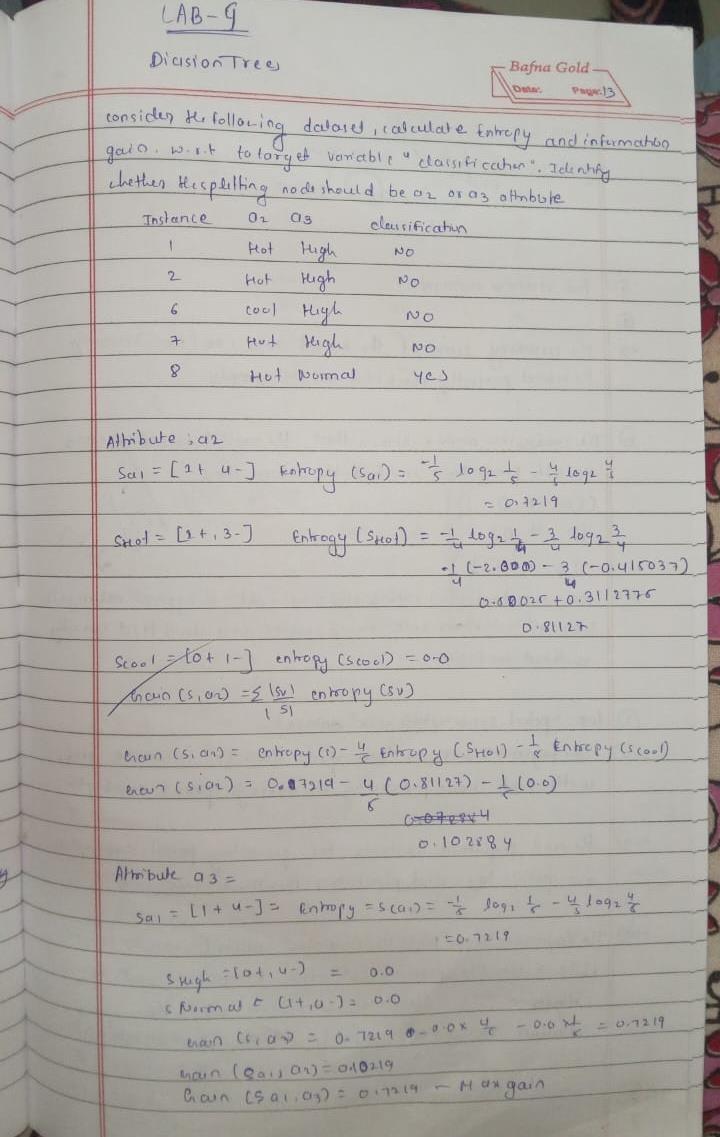 LAB-9
Dicision Trees
Bafna Gold
Date: Page: 13
consider the following dataset, calculate Entropy and information
gain. w.r.t to target variable "classification". Identify
whether the splitting node should be a2 or a3 attribute
Instance a2 a3 classification
1 Hot High NO
2 Hot High NO
6 cool High NO
7 Hot High NO
8 Hot Normal yes
Attribute ; a2
Sa1 = [1+ 4-] Entropy (Sa1) = -1/5 log2 1/5 - 4/5 log2 4/5
= 0.7219
SHot = [1+, 3-] Entropy (SHot) = -1/4 log2 1/4 - 3/4 log2 3/4
-1/4 (-2.000) - 3/4 (-0.415037)
+ 0.3112775
0.81127
Scool = [0+ 1-] entropy (Scool) = 0.0
Gain (S, a2) = Σ |Sv|/|S| entropy (Sv)
Gain (S, a2) = entropy (S) - 4/5 Entropy (SHot) - 1/5 Entropy (Scool)
Gain (S, a2) = 0.7219 - 4/5 (0.81127) - 1/5 (0.0)
0.102884
Attribute a3 =
Sa1 = [1+ 4-] = Entropy = S(a1) = -1/5 log2 1/5 - 4/5 log2 4/5
= 0.7219
SHigh = [0+, 4-) = 0.0
S Normal = (1+, 0-) = 0.0
Gain (S, a3) = 0.7219 - 0.0 x 4/5 - 0.0 x 1/5 = 0.7219
Gain (Sa1, a2) = 0.10219
Gain (Sa1, a3) = 0.7219 - Max gain